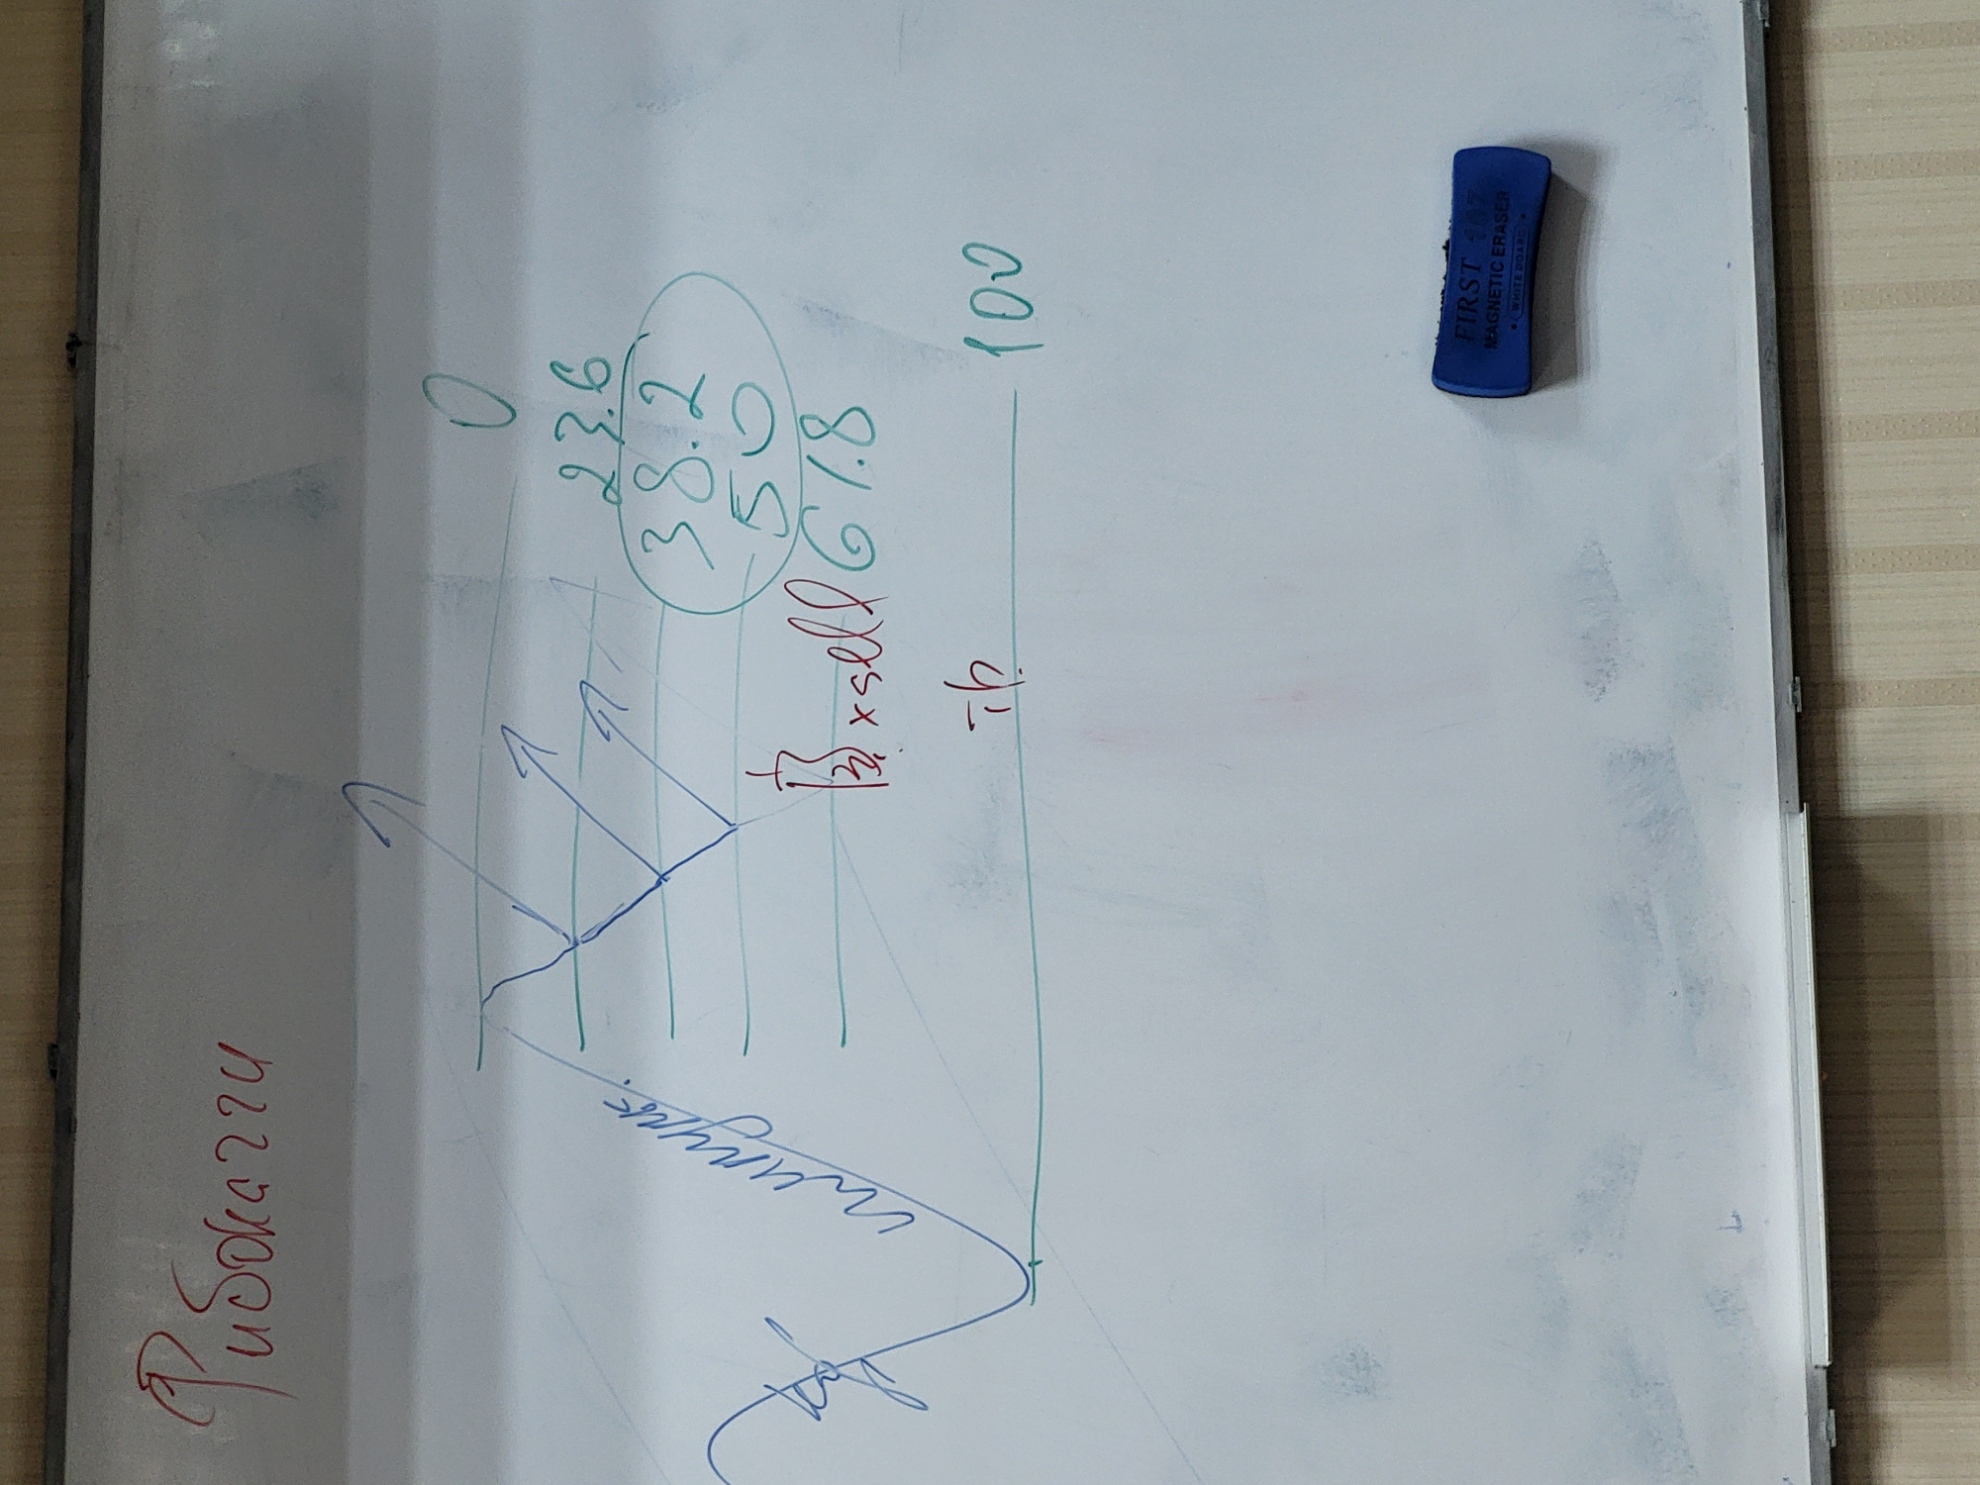 Фибоначчи
0
23.6
импульс.
38.2
50
x sell 61.8
100
FIRST
MAGNETIC ERASER
WHITE BOARD